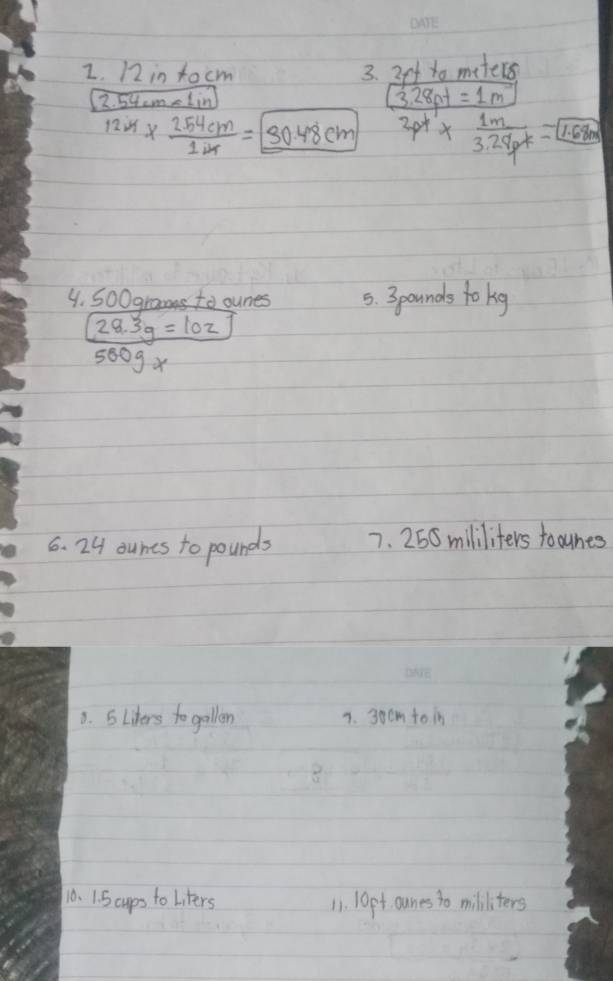 DATE
2. 12 in to cm
2.54 cm = 1in
12in x 2.54cm = 30.48 cm
1in
3. 2pt to meters
3.28pt = 1m
2pt x 1m =
3.28pt
4. 500 grames to ounes
28.3g = 1oz
500g x
5. 3 pounds to kg
6. 24 ounes to pounds
7. 250 mililiters to ounes
DATE
8. 5 Liters to gallon
9. 30cm to in
10. 1.5 cups to Liters
11. 10pt ounes to mililiters